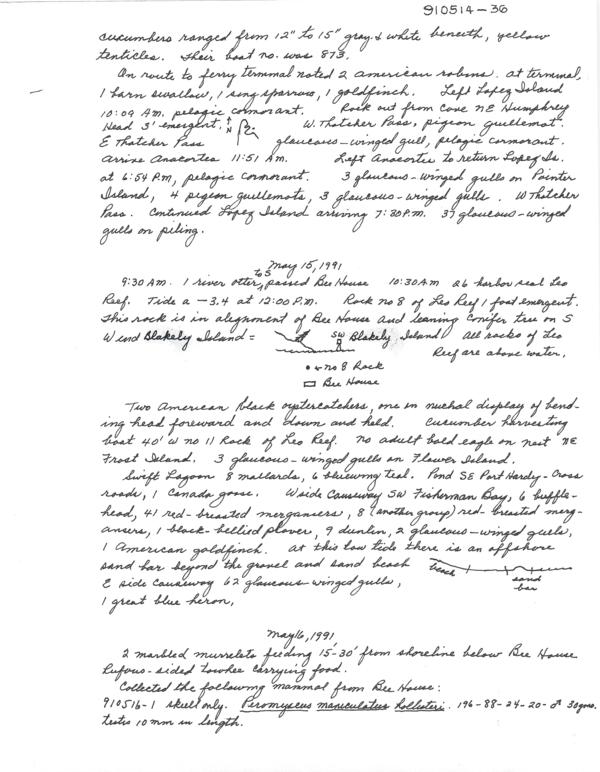 910514-36
cucumbers ranged from 12" to 15" gray & white beneath, yellow
tenticles. Their boat no. was 873.
On route to ferry terminal noted 2 american robins. at terminal,
1 barn swallow, 1 song sparrow, 1 goldfinch. Left Lopez Island
10:09 AM. pelagic cormorant. Rock out from Cove NE Humphrey
Head 3' emergent. N W. Thatcher Pass, pigeon guillemot.
E Thatcher Pass glaucous-winged gull, pelagic cormorant.
Arrive Anacortes 11:51 AM. Left Anacortes to return Lopez Is.
at 6:54 P.M, pelagic cormorant. 3 glaucous-winged gulls on Pointer
Island, 4 pigeon guillemots, 3 glaucous-winged gulls. W Thatcher
Pass. Continued Lopez Island arriving 7:30 P.M. 37 glaucous-winged
gulls on piling.
May 15, 1991
9:30 AM. 1 river otter, to S passed Bee House 10:30 AM 26 harbor seal Leo
Reef. Tide a -3.4 at 12:00 P.M. Rock no 8 of Leo Reef 1 foot emergent.
This rock is in alegnment of Bee House and leaning Conifer tree on S
W end Blakely Island = SW Blakely Island All rocks of Leo
Reef are above water.
no 8 Rock
Bee House
Two American black oystercatchers, one in nuchal display of bend-
ing head foreward and down and held. Cucumber harvesting
boat 40' W no 11 Rock of Leo Reef. no adult bald eagle on nest NE
Frost Island. 3 glaucous-winged gulls on Flower Island.
Swift Lagoon 8 mallards, 6 bluewing teal. Pond SE Port Hardy-Cross
roads, 1 Canada goose. W side Causeway SW Fisherman Bay, 6 buffle-
head, 41 red-breasted mergansers, 8 (another group) red-breasted merg-
ansers, 1 black-bellied plover, 9 dunlin, 2 glaucous-winged gulls,
1 American goldfinch. at this low tide there is an offshore
sand bar beyond the gravel and sand beach beach sand bar
E side Causeway 62 glaucous-winged gulls,
1 great blue heron,
May 16, 1991,
2 marbled murrelets feeding 15-30' from shoreline below Bee House
Rufous-sided towhee carrying food.
Collected the following mammal from Bee House:
910516-1 skull only. Peromyscus maniculatus hollisteri. 196-88-24-20-♂ 30 gms.
testis 10 mm in length.